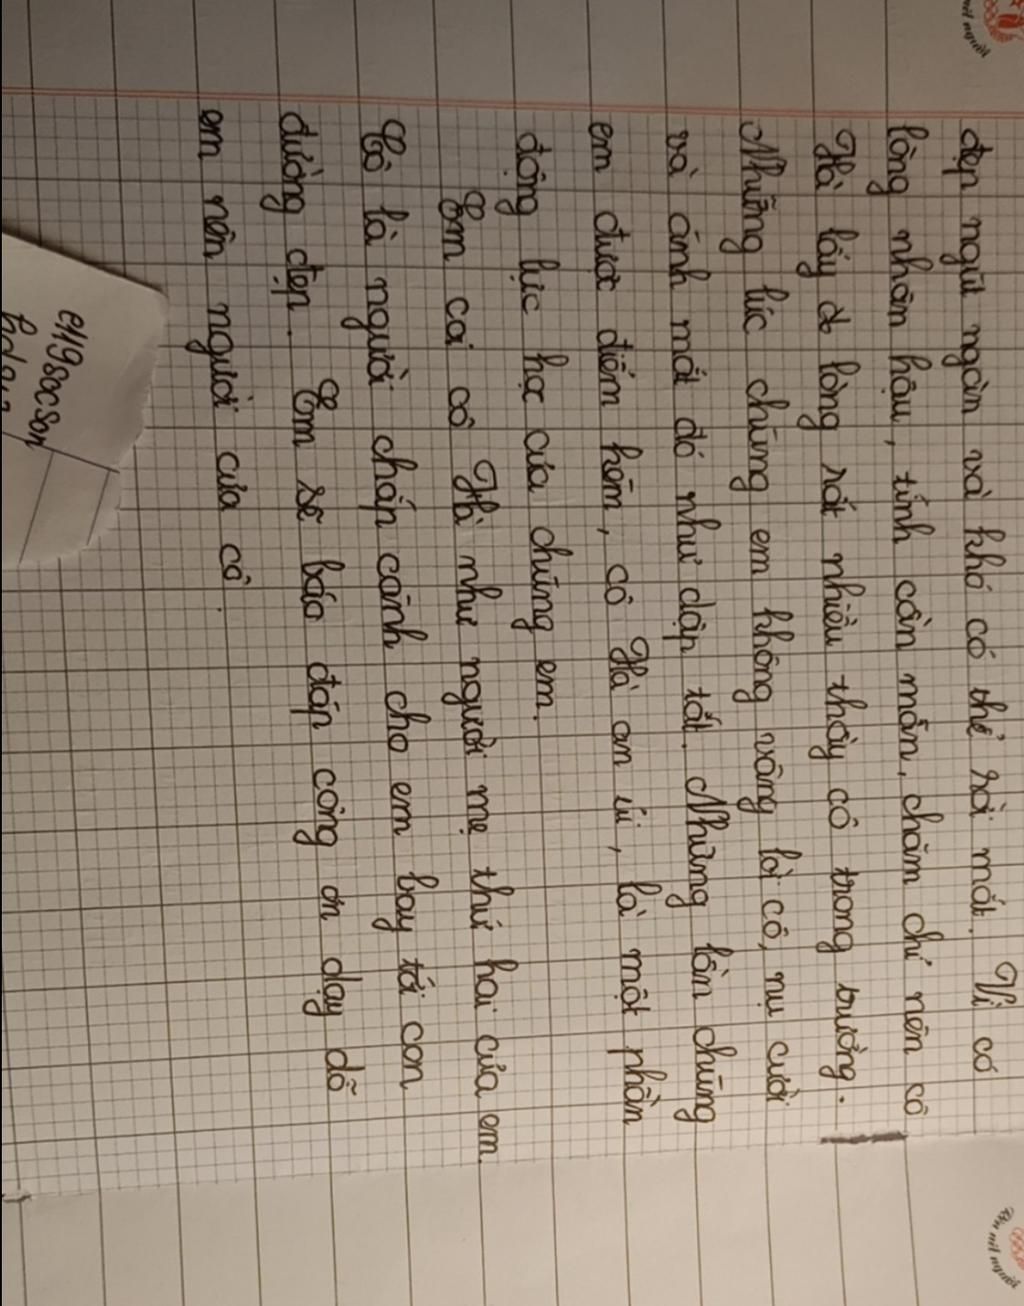 đẹp ngút ngàn và khó có thể rời mắt. Vì có
lòng nhân hậu, tính cần mẫn, chăm chỉ nên cô
Hà lấy đc lòng rất nhiều thầy cô trong trường.
Những lúc chúng em không vâng lời cô, nụ cười
và ánh mắt đó như dập tắt. Những lần chúng
em được điểm kém, cô Hà an ủi, là một phần
động lực học của chúng em.
Em coi cô Hà như người mẹ thứ hai của em.
Cô là người chắp cánh cho em bay tới con
đường đẹp. Em sẽ báo đáp công ơn dạy dỗ
em nên người của cô.
e119socson
nét người
nét người